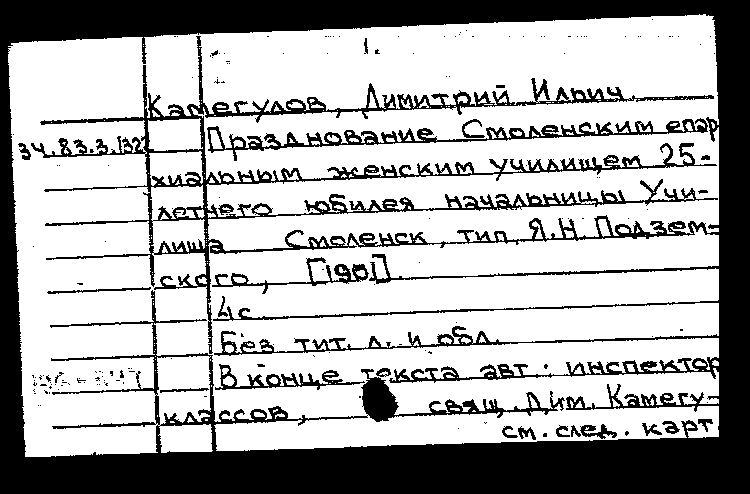 1.
Камегулов, Димитрий Ильич.
34.83.3.132 Празднование Смоленским епар
хиальным женским училищем 25-
летнего юбилея начальницы Учи-
лища Смоленск, тип. Я.Н. Подзем=
ского, [1901].
4с
Без тит. л. и обл.
В конце текста авт: инспектор
классов, свящ. Дим. Камегу-
см. след. карт